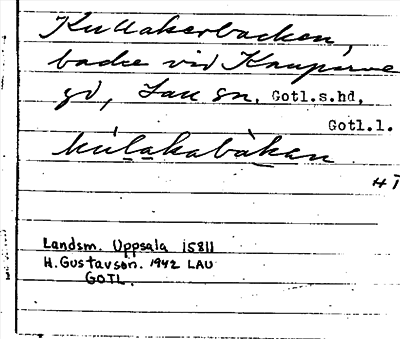 Kullakerbacken,
backe vid Kauparve
gd, Lau sn, Gotl.s.hd,
Gotl.l.
kúlakabàkan
HT
Landsm. Uppsala 15811
H. Gustavson. 1942 LAU
GOTL.